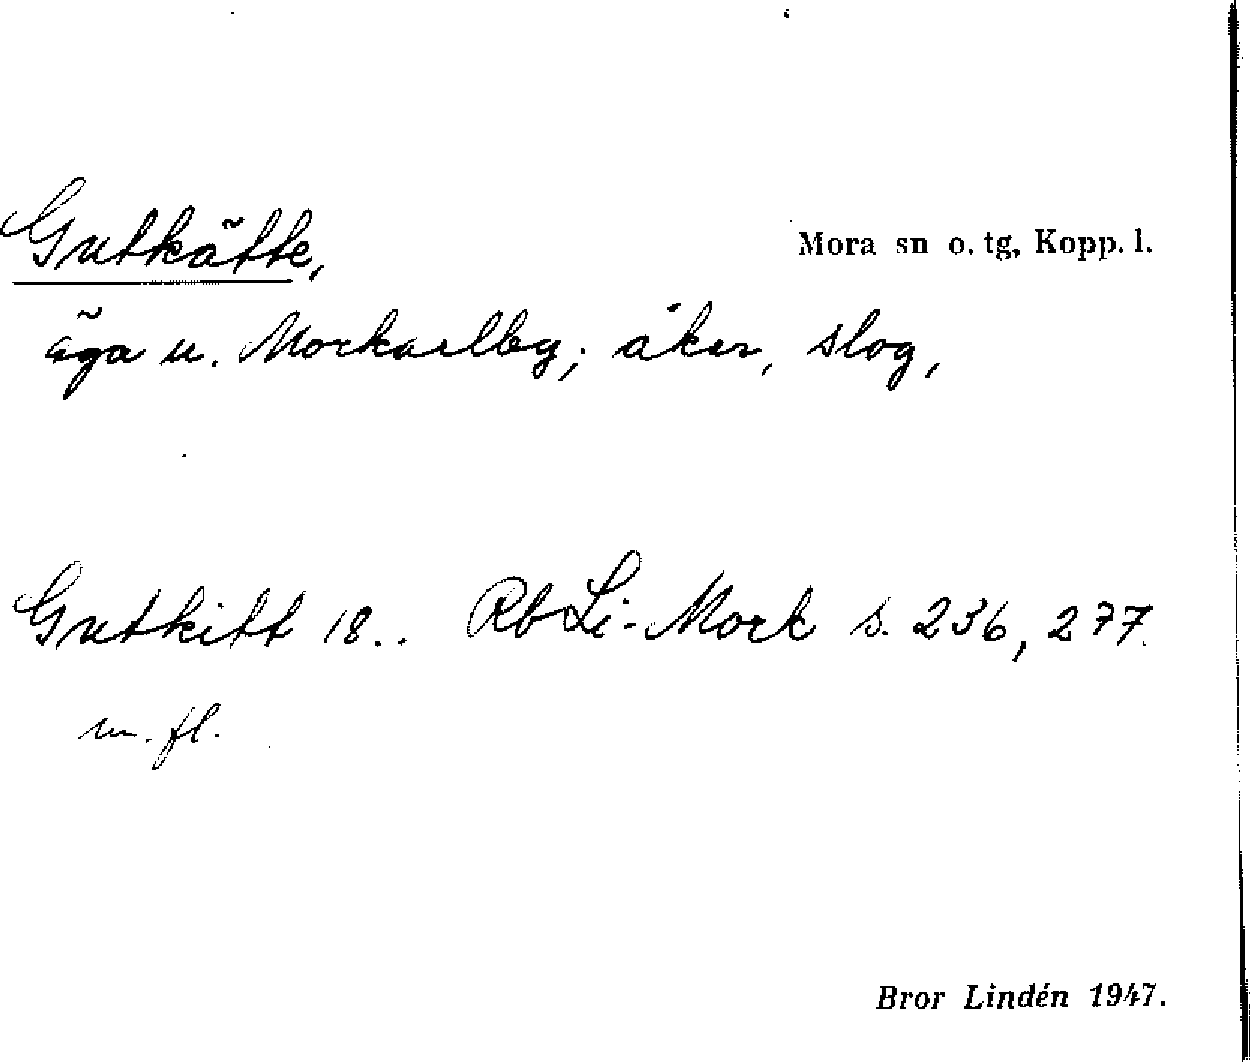 Gutkätte,
Mora sn o. tg, Kopp. l.
äga u. Mockarlby; åker, slog,
Gutkitt 18.. Rb Li-Mork s. 236, 277.
m. fl.
Bror Lindén 1947.